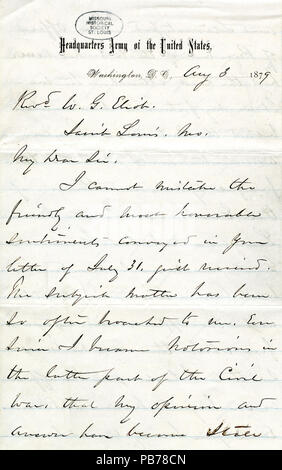 MISSOURI
HISTORICAL
SOCIETY
ST. LOUIS
Headquarters Army of the United States,
Washington, D. C., Aug 3 1879
Revd. W. G. Eliot.
Saint Louis, Mo.
My Dear Sir.
I cannot mistake the
friendly and most honorable
sentiments conveyed in your
letter of July 31, just received.
The subject matter has been
so often broached to me, Ever
since I became notorious in
the latter part of the Civil
War, that my opinion and
answer have become
alamy
Image ID: PB78CN
www.alamy.com